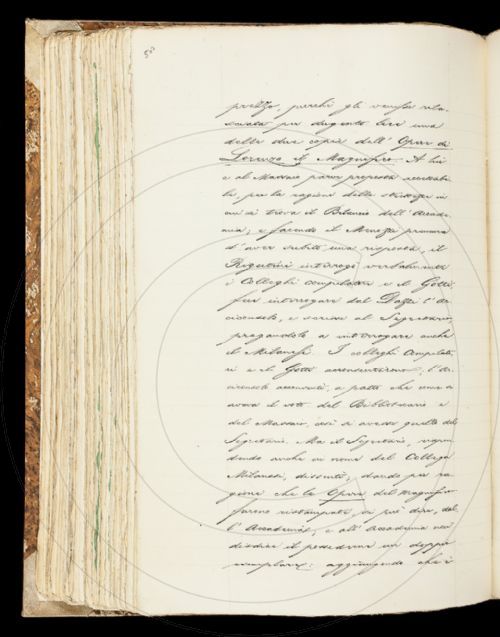 58
prezzo, purchè gli venisse rila-
sciata per dugento lire una
delle due copie dell' Opere di
Lorenzo il Magnifico. A lui
e al Massaio parve proposta accettabi-
le per la ragione delle strettezze in
cui si trova il Bilancio dell' Accade-
mia; e facendo il premura
d' aver subito una risposta, il
Rigutini interrogò verbalmente
i Colleghi compilatori e il Gotti,
fece interrogare dal Dazzi l' Ar-
ciconsolo, e scrisse al Segretario,
pregandolo a interrogare anche
il Milanesi. I colleghi Compilato-
ri e il Gotti acconsentirono, l' Ar-
ciconsolo acconsentì, a patto che come si
aveva il voto del Bibliotecario e
del Massaio, così si avesse quello del
Segretario. Ma il Segretario, rispon-
dendo anche in nome del Collega
Milanesi, dissentì; dando per ra-
gione che le Opere del Magnifico
furono ristampate, si può dire, dal-
l' Accademia, e all' Accademia non
disdice il possederne un doppio
esemplare: aggiungendo che è